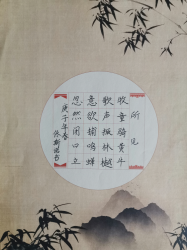 所见
牧童骑黄牛
歌声振林樾
意欲捕鸣蝉
忽然闭口立
庚子年春